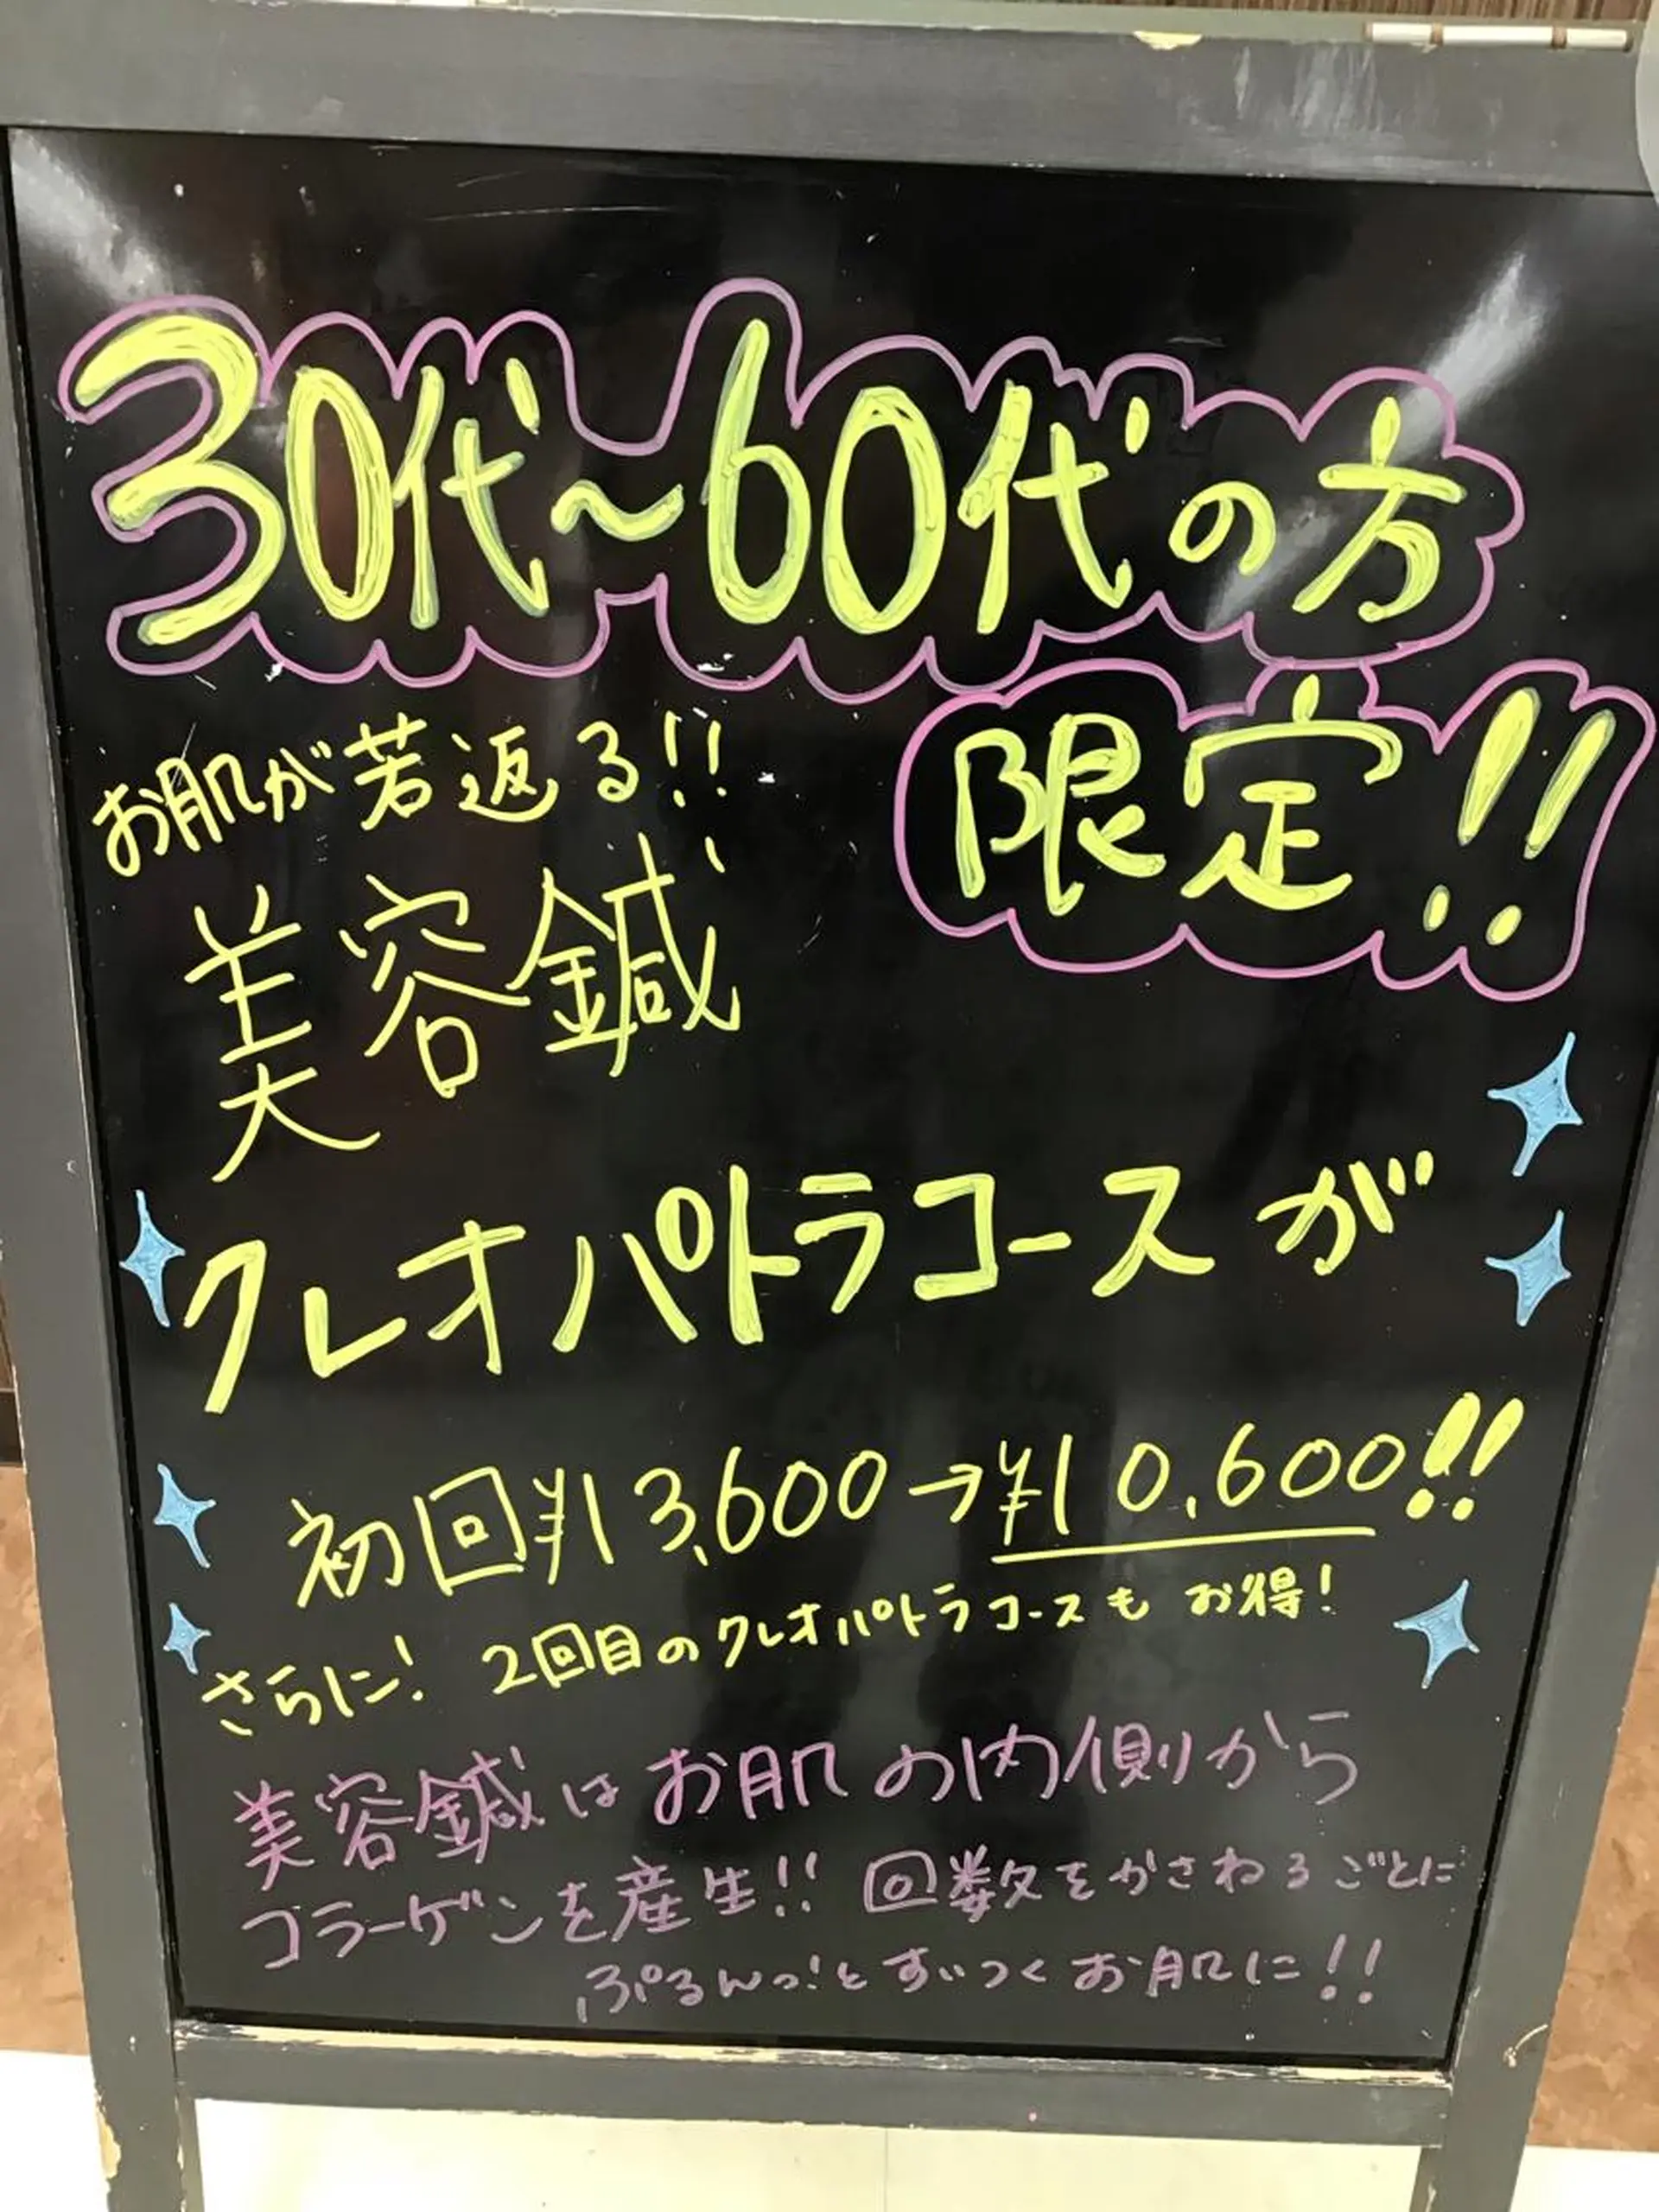 30代〜60代の方
限定!!
お肌が若返る!!
美容鍼
クレオパトラコースが
初回¥13,600→¥10,600!!
さらに! 2回目のクレオパトラコースもお得!
美容鍼はお肌の内側から
コラーゲンを産生!! 回数をかさねるごとに
ぷるんっ!と すいつくお肌に!!